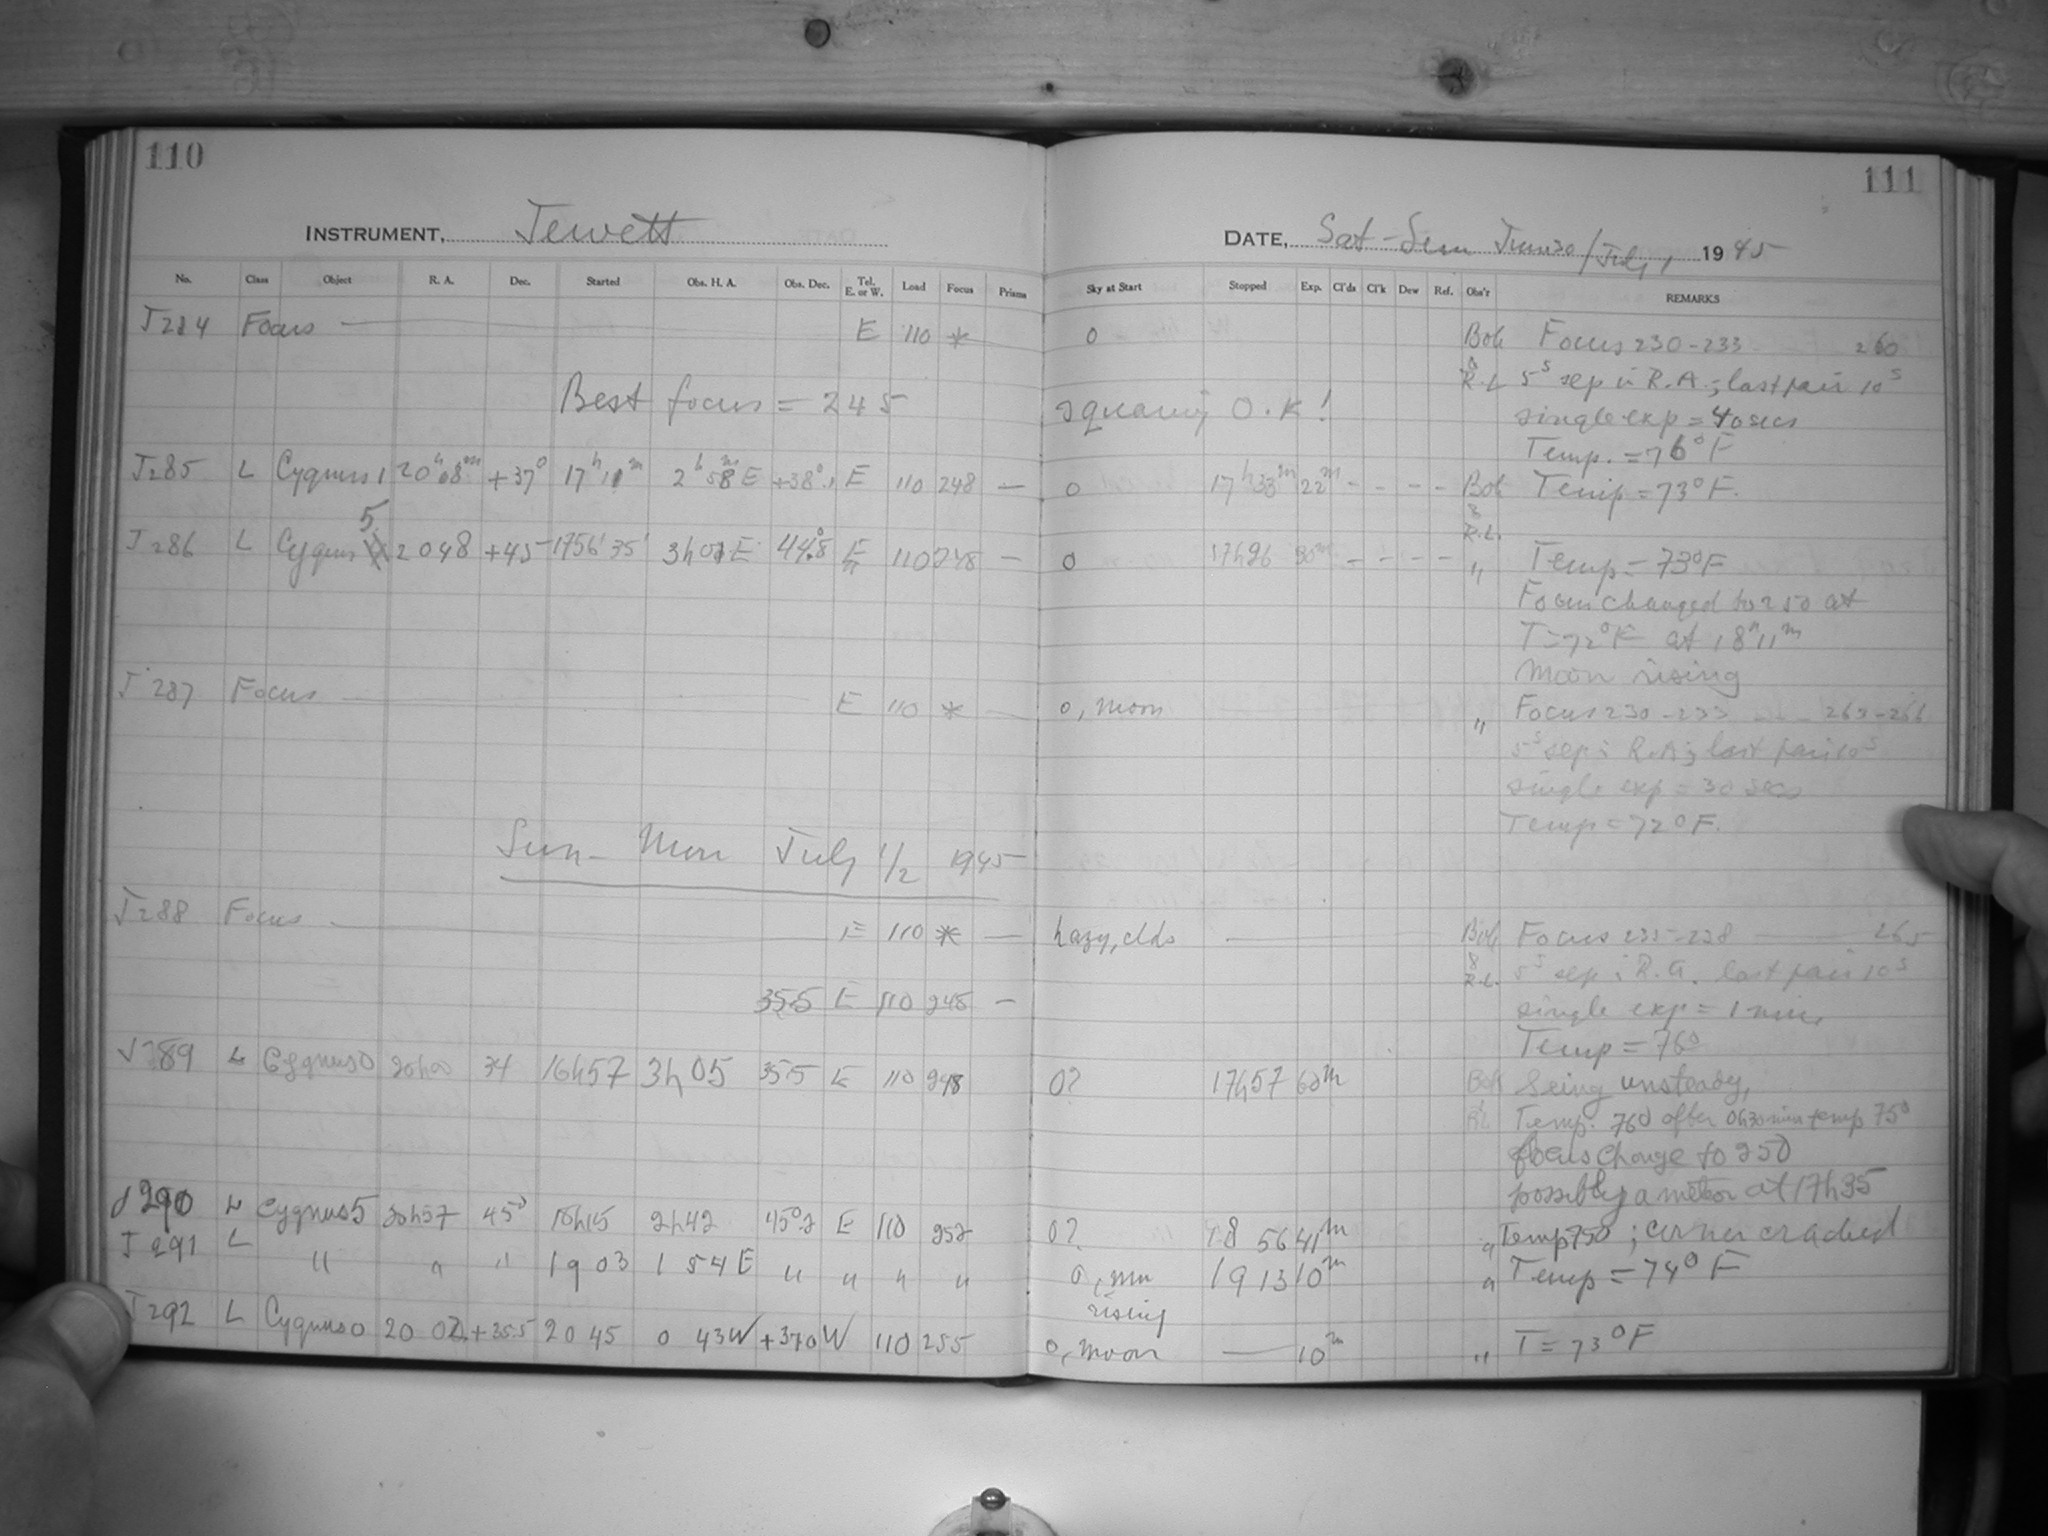 110
111
INSTRUMENT, Jewett
DATE, Sat-Sun June 30/July 1 1945
No. Class Object R. A. Dec. Started Obs. H. A. Obs. Dec. Tel. E. or W. Load Focus Prisms Sky at Start Stopped Exp. Cl'ds Cl'k Dew Ref. Obs'r REMARKS
J284 Focus — E 110 * 0 Bok Focus 230-233 260
& R.L. 5s sep in R.A.; last pair 10s
Best focus = 245 squaring O.K!
single exp = 40 secs
Temp. = 76°F
J285 L Cygnus 1 20h08m +37° 17h11m 2h58mE +38°.1 E 110 248 — 0 17h33m 22m - - - - Bok Temp = 73°F.
& R.L.
J286 L Cygnus 5 2048 +45 3h01E 44°.8 E 110 248 — 0 30m - - - - " Temp = 73°F
Focus changed to 250 at
T=72°F at 18h11m
Moon rising
J287 Focus — E 110 * — 0, moon " Focus 230-233 - - - 263-266
5s sep in R.A; last pair 10s
single exp = 30 secs
Temp = 72°F.
Sun-Mon July 1/2 1945
J288 Focus — E 110 * — hazy, clds — Bok Focus 235-238 265
& R.L. 5s sep in R.A. last pair 10s
35.5 E 110 248 — single exp = 1 min
Temp = 76°
J289 L Cygnus 0 20h00 34 16h57 3h05 35.5 E 110 248 0? 17h57 60m Bok Seing unsteady,
RL Temp. 76° after 0h30min temp 75°
focus change to 250
possibly a meteor at 17h35
J290 L Cygnus 5 20h57 45° 18h15 2h42 45°2 E 110 252 0? 18 56 41m " Temp 75°; corner cracked
J291 L " " " 19 03 1 54E " " " " 0, mn rising 19 13 10m " Temp = 74°F
J292 L Cygnus 0 20 02 +35.5 20 45 0 43W +37.0 W 110 255 0, moon — 10m " T = 73°F